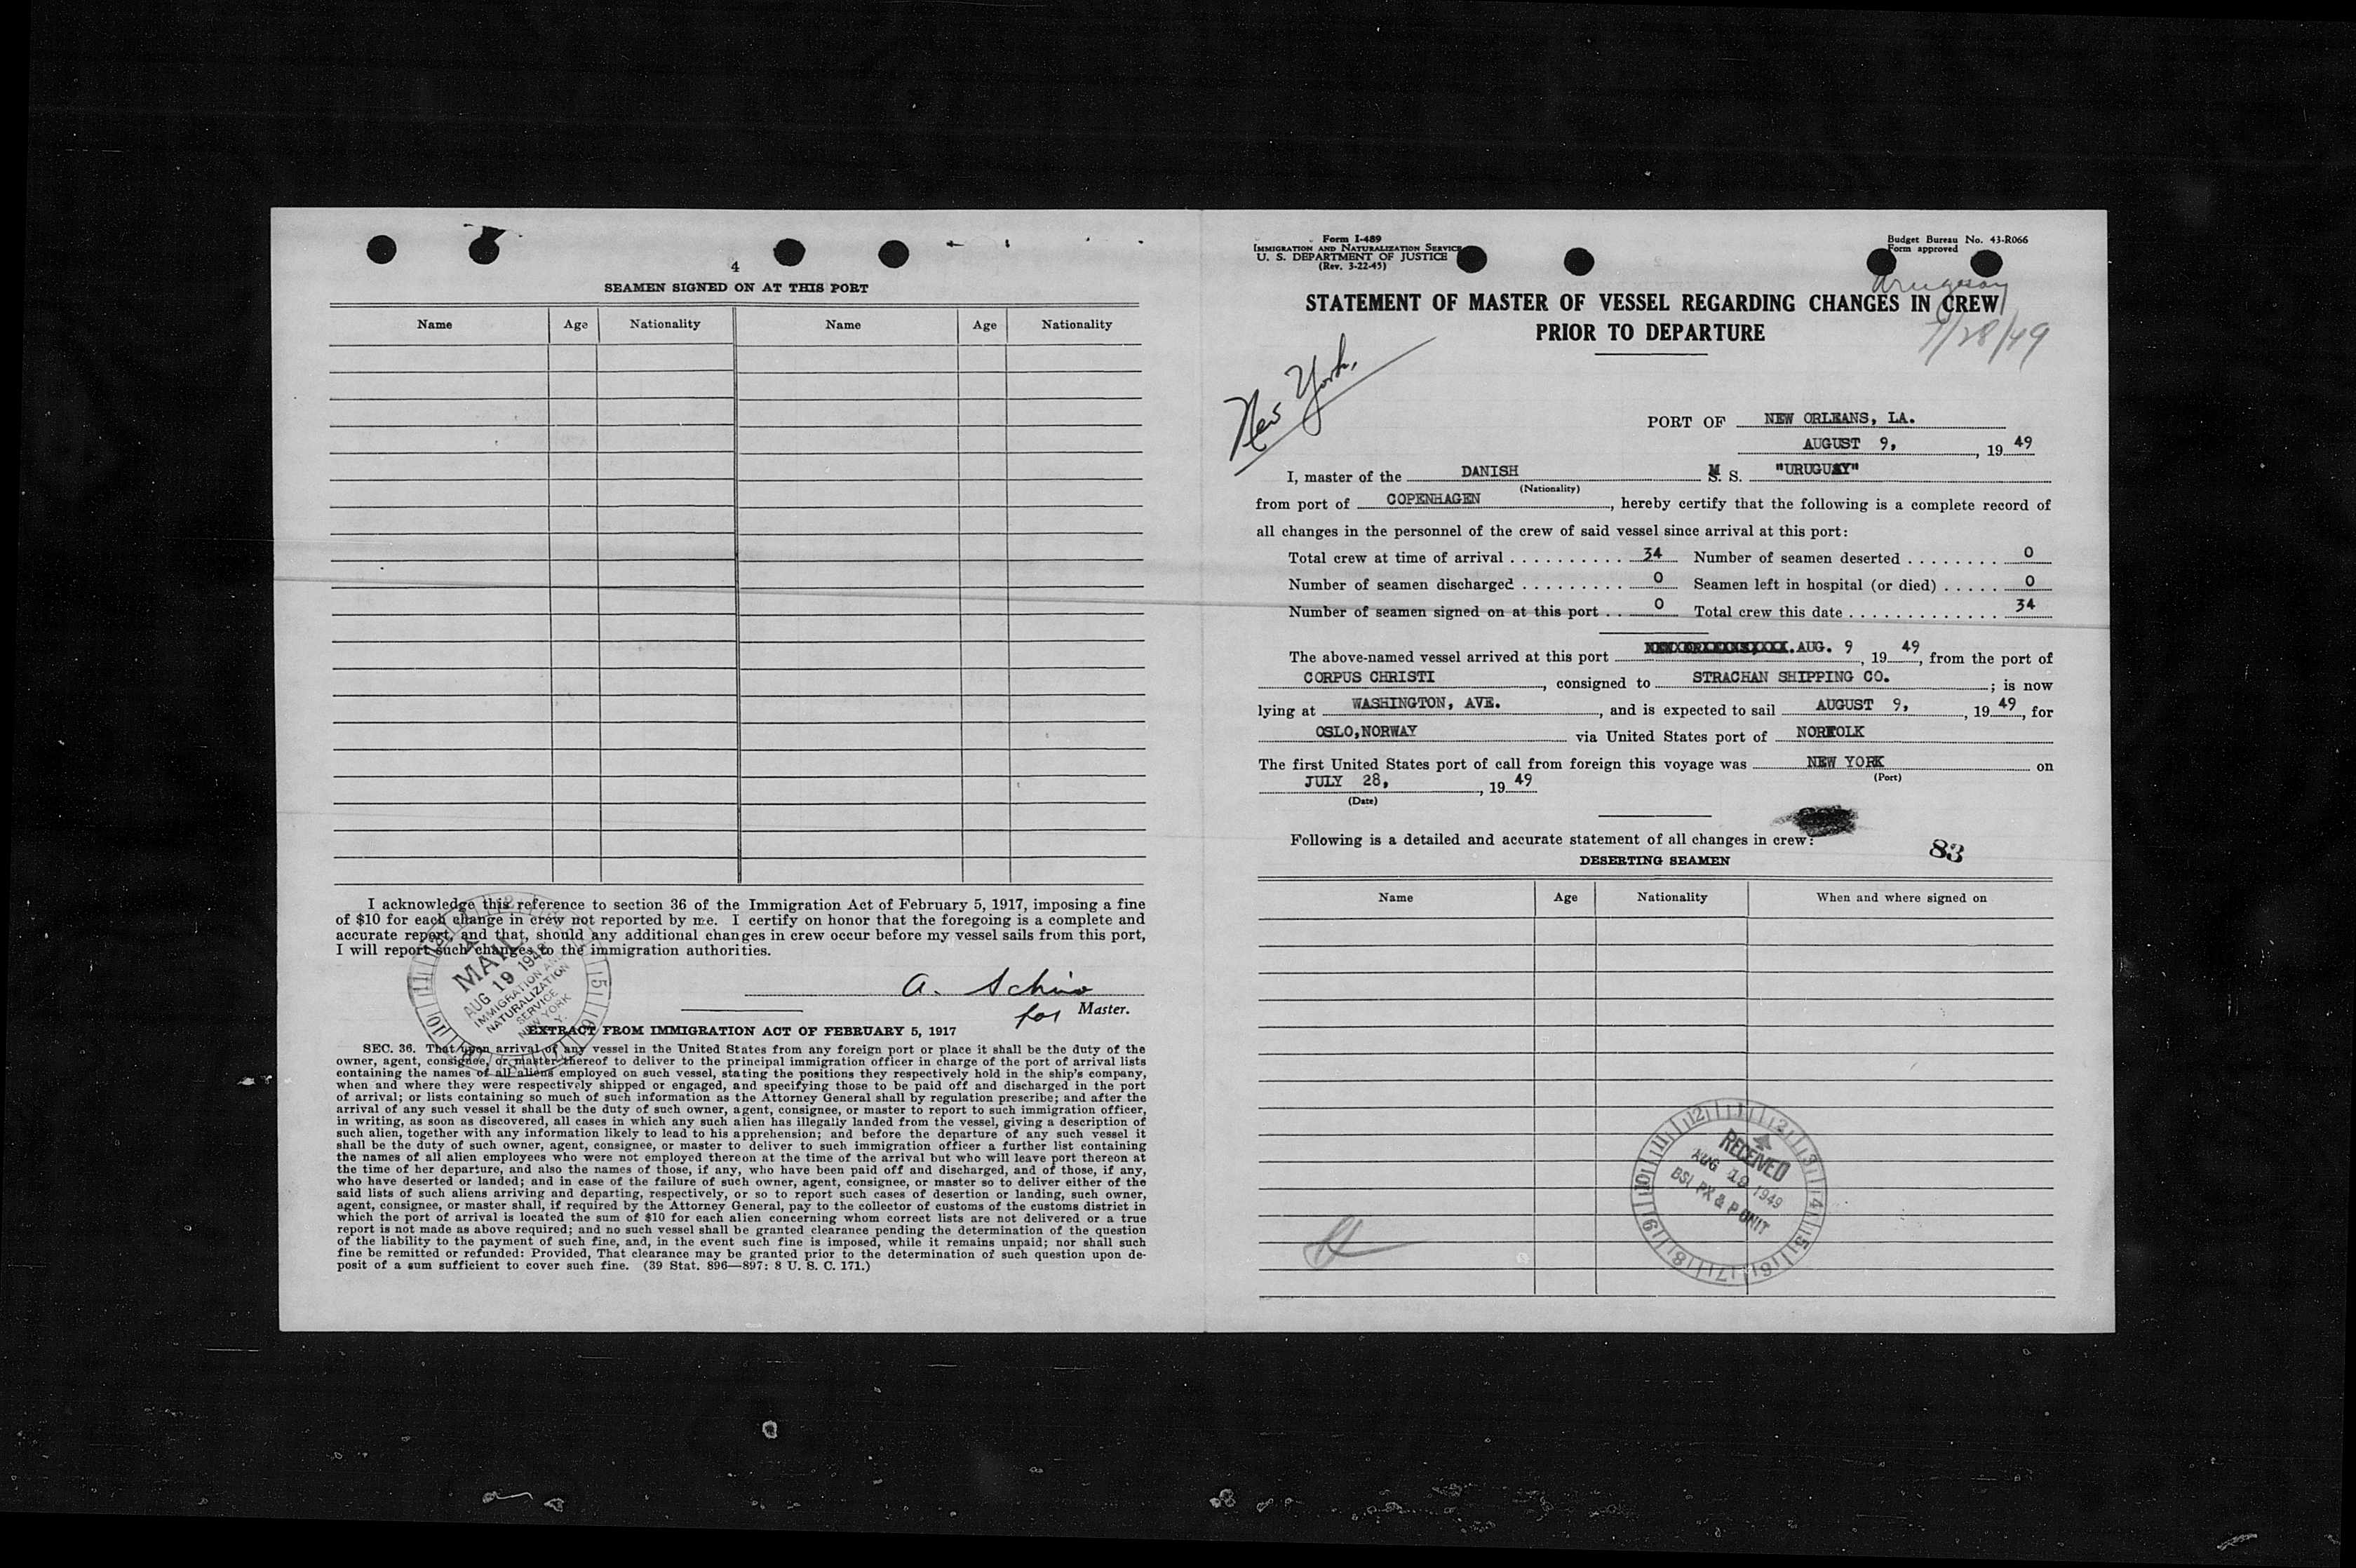 4
SEAMEN SIGNED ON AT THIS PORT
Name Age Nationality Name Age Nationality
I acknowledge this reference to section 36 of the Immigration Act of February 5, 1917, imposing a fine
of $10 for each change in crew not reported by me. I certify on honor that the foregoing is a complete and
accurate report, and that, should any additional changes in crew occur before my vessel sails from this port,
I will report such changes to the immigration authorities.
MAIL
AUG 19 1949
IMMIGRATION AND
NATURALIZATION
SERVICE
NEW YORK
N. Y.
A.
for Master.
EXTRACT FROM IMMIGRATION ACT OF FEBRUARY 5, 1917
SEC. 36. That upon arrival of any vessel in the United States from any foreign port or place it shall be the duty of the
owner, agent, consignee, or master thereof to deliver to the principal immigration officer in charge of the port of arrival lists
containing the names of all aliens employed on such vessel, stating the positions they respectively hold in the ship's company,
when and where they were respectively shipped or engaged, and specifying those to be paid off and discharged in the port
of arrival; or lists containing so much of such information as the Attorney General shall by regulation prescribe; and after the
arrival of any such vessel it shall be the duty of such owner, agent, consignee, or master to report to such immigration officer,
in writing, as soon as discovered, all cases in which any such alien has illegally landed from the vessel, giving a description of
such alien, together with any information likely to lead to his apprehension; and before the departure of any such vessel it
shall be the duty of such owner, agent, consignee, or master to deliver to such immigration officer a further list containing
the names of all alien employees who were not employed thereon at the time of the arrival but who will leave port thereon at
the time of her departure, and also the names of those, if any, who have been paid off and discharged, and of those, if any,
who have deserted or landed; and in case of the failure of such owner, agent, consignee, or master so to deliver either of the
said lists of such aliens arriving and departing, respectively, or so to report such cases of desertion or landing, such owner,
agent, consignee, or master shall, if required by the Attorney General, pay to the collector of customs of the customs district in
which the port of arrival is located the sum of $10 for each alien concerning whom correct lists are not delivered or a true
report is not made as above required; and no such vessel shall be granted clearance pending the determination of the question
of the liability to the payment of such fine, and, in the event such fine is imposed, while it remains unpaid; nor shall such
fine be remitted or refunded: Provided, That clearance may be granted prior to the determination of such question upon de-
posit of a sum sufficient to cover such fine. (39 Stat. 896—897: 8 U. S. C. 171.)
Form I-489
IMMIGRATION AND NATURALIZATION SERVICE
U. S. DEPARTMENT OF JUSTICE
(Rev. 3-22-45)
Budget Bureau No. 43-R066
Form approved
STATEMENT OF MASTER OF VESSEL REGARDING CHANGES IN CREW
PRIOR TO DEPARTURE
7/28/49
New York.
PORT OF NEW ORLEANS, LA.
AUGUST 9, 19 49
I, master of the DANISH M S. "URUGUAY"
(Nationality)
from port of COPENHAGEN, hereby certify that the following is a complete record of
all changes in the personnel of the crew of said vessel since arrival at this port:
Total crew at time of arrival 34 Number of seamen deserted 0
Number of seamen discharged 0 Seamen left in hospital (or died) 0
Number of seamen signed on at this port 0 Total crew this date 34
The above-named vessel arrived at this port AUG. 9, 19 49, from the port of
CORPUS CHRISTI, consigned to STRACHAN SHIPPING CO.; is now
lying at WASHINGTON, AVE., and is expected to sail AUGUST 9, 19 49, for
OSLO, NORWAY via United States port of NORFOLK
The first United States port of call from foreign this voyage was NEW YORK on
(Port)
JULY 28, 19 49
(Date)
Following is a detailed and accurate statement of all changes in crew:
83
DESERTING SEAMEN
Name Age Nationality When and where signed on
RECEIVED
AUG 19 1949
BSI PX & P UNIT